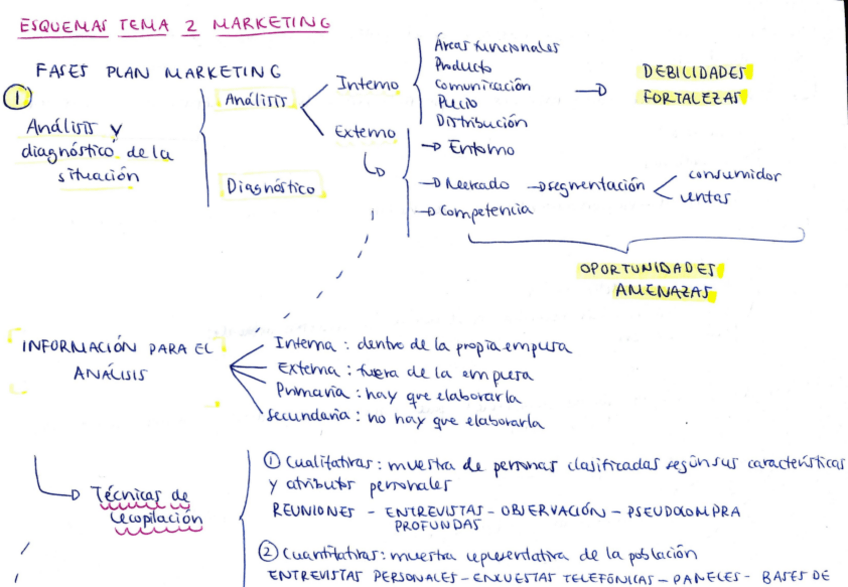 ESQUEMAS TEMA 2 MARKETING
FASES PLAN MARKETING
①
Análisis y
diagnóstico de la
situación
Análisis
Diagnóstico
Interno
Externo
Áreas funcionales
Producto
Comunicación
Precio
Distribución
DEBILIDADES
FORTALEZAS
Entorno
Mercado → segmentación
consumidor
ventas
Competencia
OPORTUNIDADES
AMENAZAS
INFORMACIÓN PARA EL
ANÁLISIS
Interna : dentro de la propia empresa
Externa : fuera de la empresa
Primaria : hay que elaborarla
Secundaria : no hay que elaborarla
Técnicas de
recopilación
① Cualitativas : muestra de personas clasificadas según sus características
y atributos personales
REUNIONES - ENTREVISTAS - OBSERVACIÓN - PSEUDOCOMPRA
PROFUNDAS
② Cuantitativas : muestra representativa de la población
ENTREVISTAS PERSONALES - ENCUESTAS TELEFÓNICAS - PANELES - BASES DE